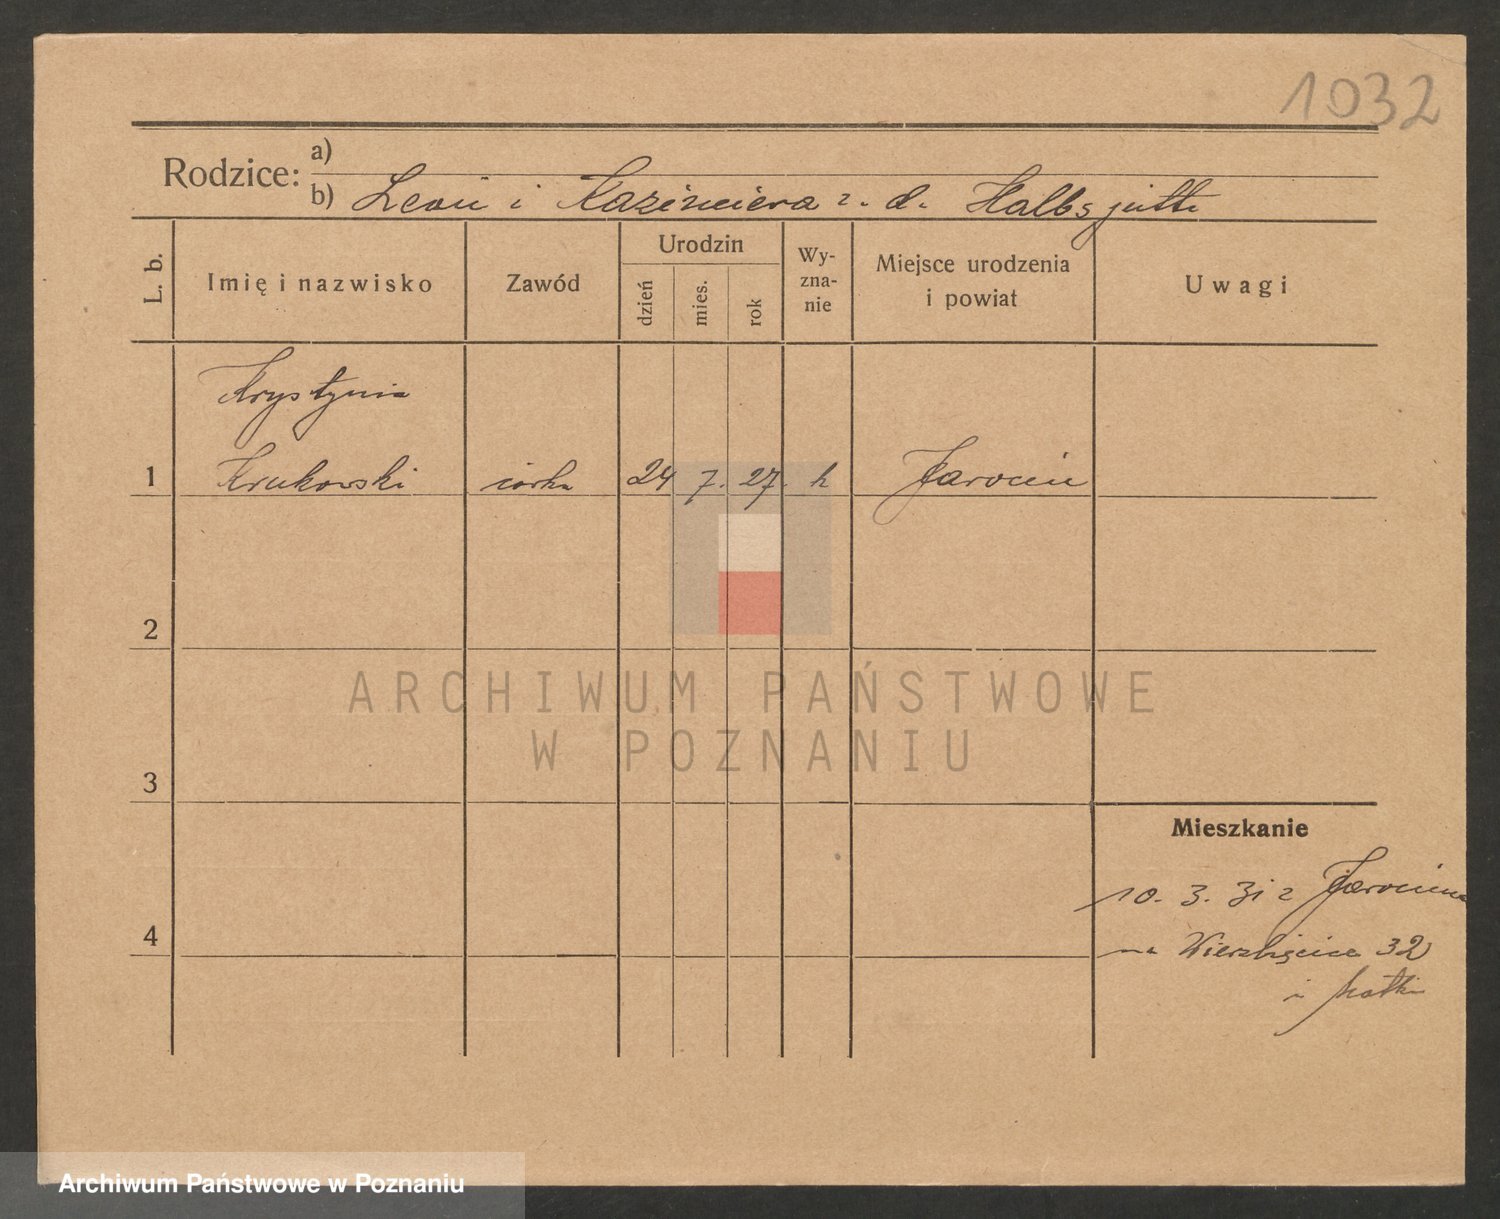 1032
Rodzice: a)
b) Leon i Kazimiera z. d. Halbsguth
L. b.
Imię i nazwisko
Zawód
Urodzin
dzień
mies.
rok
Wy-
zna-
nie
Miejsce urodzenia
i powiat
Uwagi
Krystyna
1 Krukowski córka 24 7. 27. k Jarocin
2
3
4
Mieszkanie
10. 3. 31 z Jarocina
na Wierzbięcice 32
Matki
ARCHIWUM PAŃSTWOWE
W POZNANIU
Archiwum Państwowe w Poznaniu